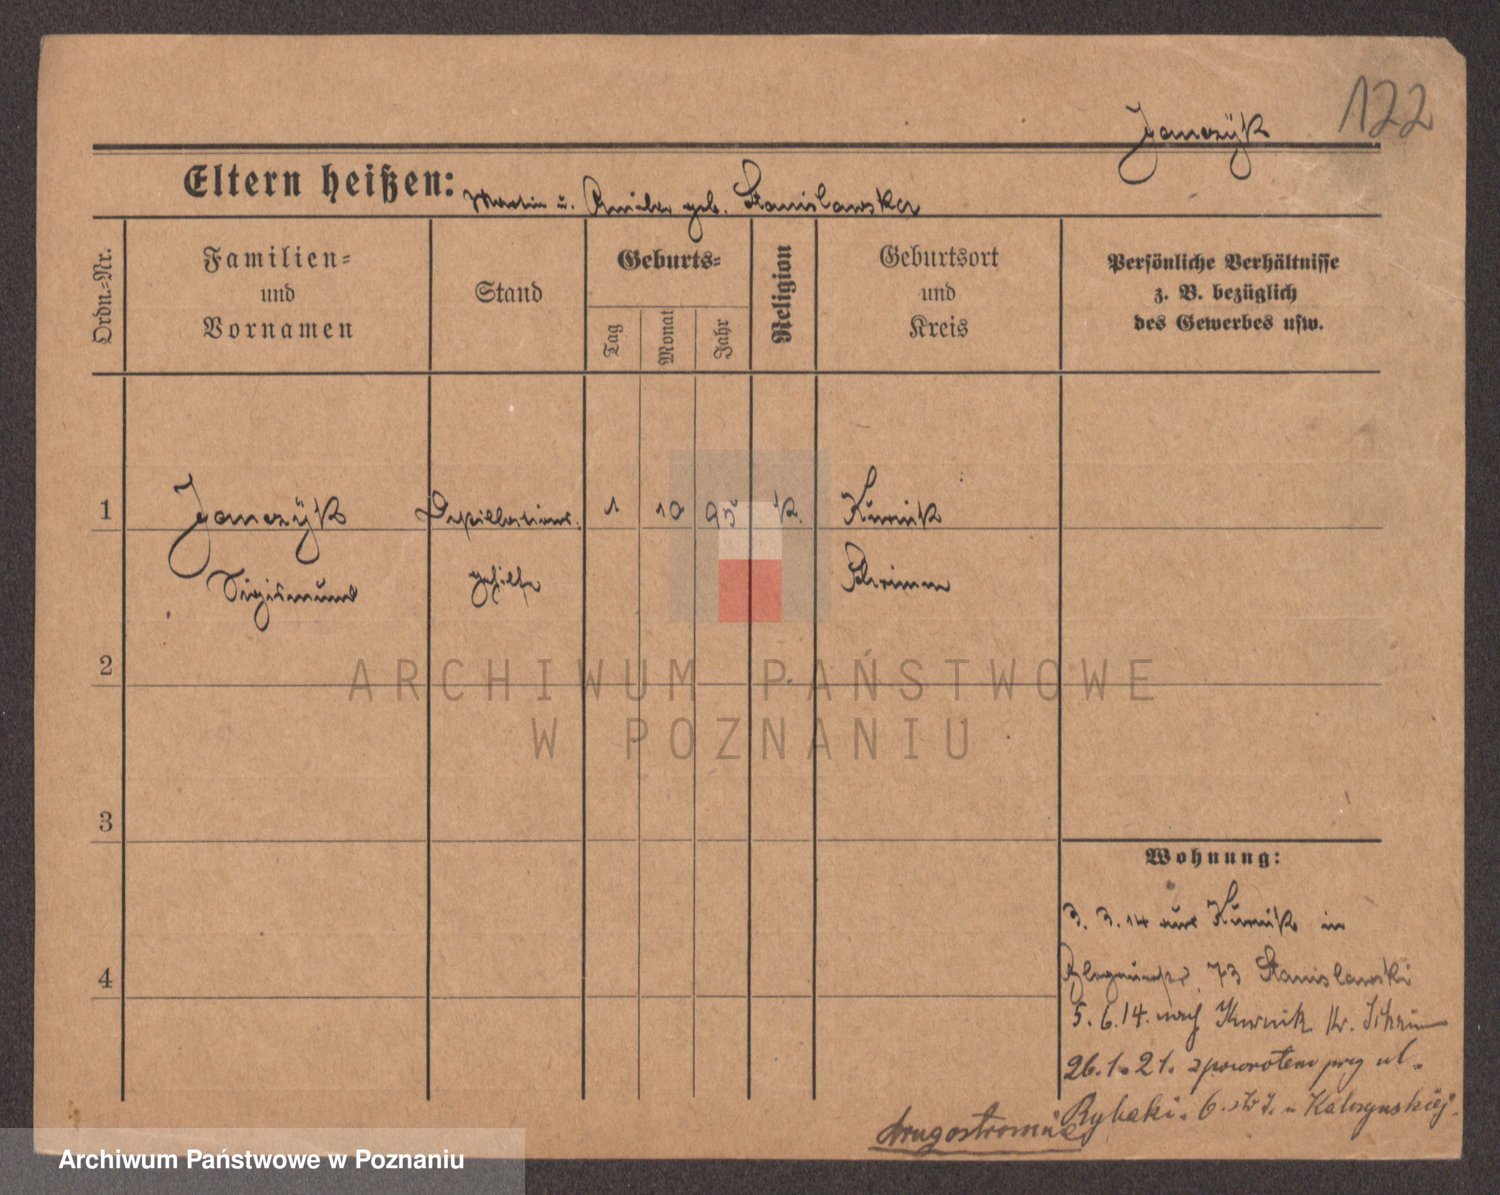 122
Janczÿk
Eltern heißen: Martin u. geb. Stanislawska
Ordn.=Nr.
Familien=
und
Vornamen
Stand
Geburts=
Tag
Monat
Jahr
Religion
Geburtsort
und
Kreis
Persönliche Verhältnisse
z. B. bezüglich
des Gewerbes usw.
1 Janczÿk Destillations. 1 10 95 K. Kurnik
Sigismund gehilfe Schrimm
2
3
4
Wohnung:
3. 3. 14 aus Kurnik in
73 Stanislawski
5. 6. 14. nach Kurnik Kr. Schrimm
26. 1. 21. zpowrotem przy ul.
Rybaki. 6. u Kalczynskiej.
drugostronnie
ARCHIWUM PAŃSTWOWE
W POZNANIU
Archiwum Państwowe w Poznaniu